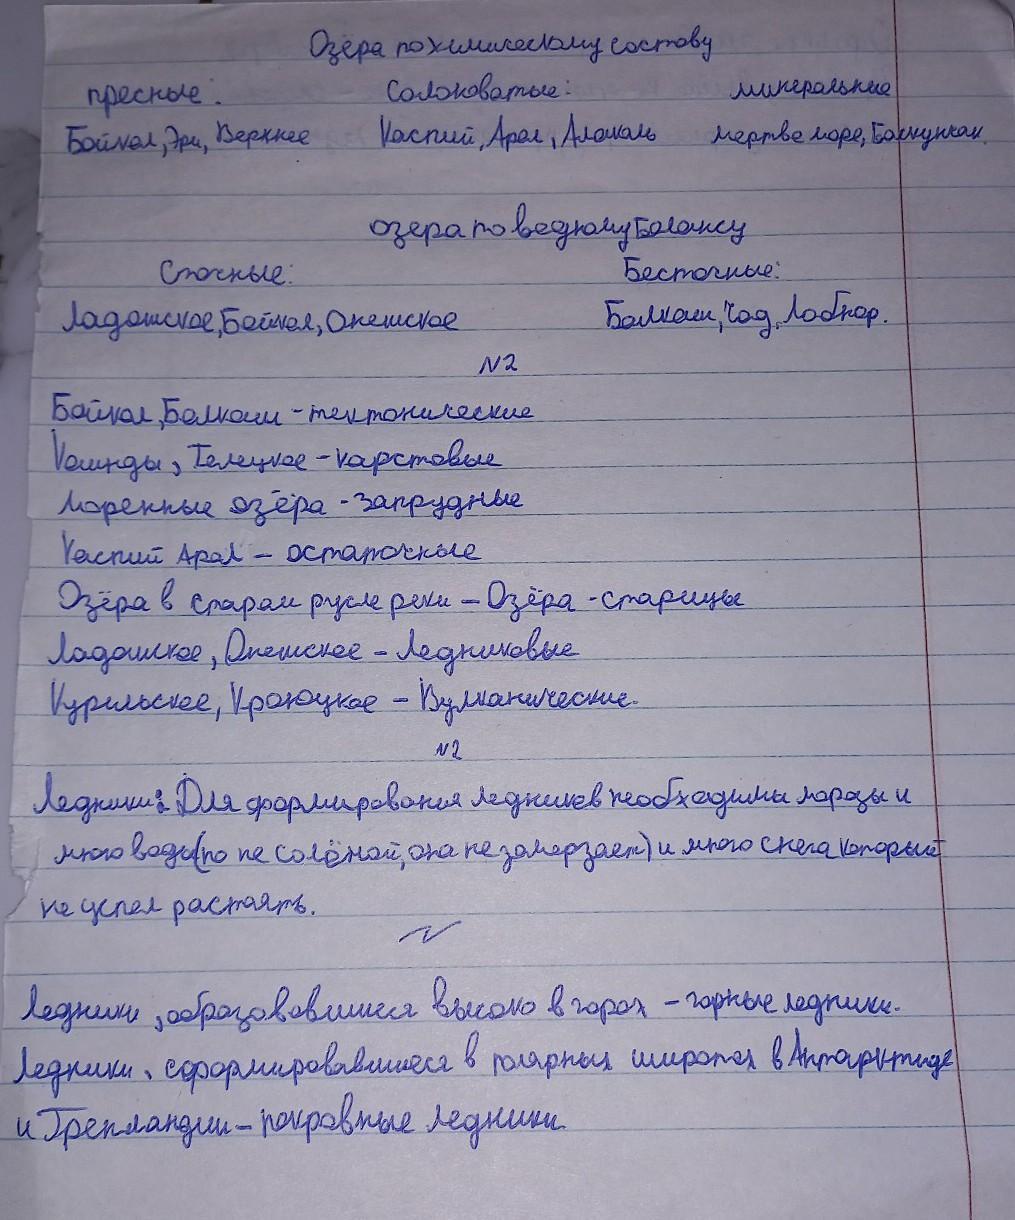 Озёра по химическому составу
пресные: Солоноватые: минеральные
Байкал, Эри, Верхнее Каспий, Арал, Алаколь мертве море, Баскунчак.
озера по водному Балансу
Сточные: Бесточные:
Ладожское, Байкал, Онежское Балкаш, Чад, Лобнор.
N2
Байкал, Балкаш - тектонические
Каинды, Телецкое - карстовые
Моренные озёра - запрудные
Каспий Арал - остаточные
Озёра в старом русле реки - Озёра - старицы
Ладожское, Онежское - Ледниковые
Курильское, Кроноцкое - Вулканические.
N2
Ледники: Для формирования ледников необходимы морозы и
много воды (но не солёной, она не замерзает) и много снега который
не успел растаять.
N
Ледники, образовавшиеся высоко в горах - горные ледники.
Ледники, сформировавшиеся в полярных широтах в Антарктиде
и Гренландии - покровные ледники